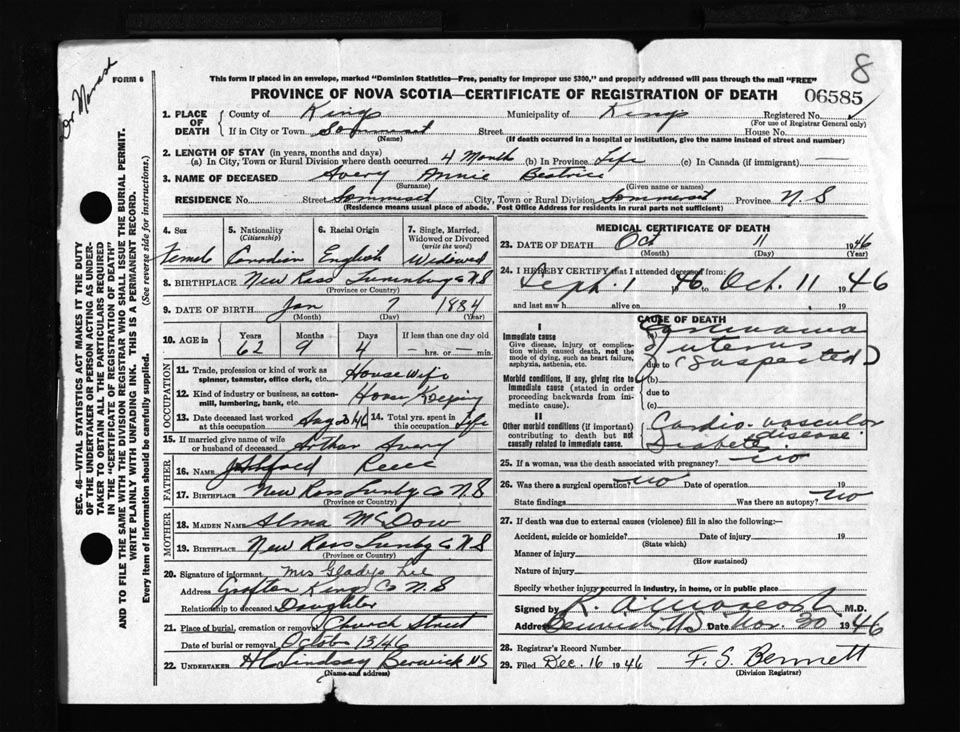 8
FORM 6
This form if placed in an envelope, marked "Dominion Statistics—Free, penalty for improper use $300," and properly addressed will pass through the mail "FREE"
PROVINCE OF NOVA SCOTIA—CERTIFICATE OF REGISTRATION OF DEATH
06585
1. PLACE OF DEATH { County of Kings Municipality of Kings Registered No.
(For use of Registrar General only)
If in City or Town Sommerset Street House No.
(Name) (If death occurred in a hospital or institution, give the name instead of street and number)
2. LENGTH OF STAY (in years, months and days)
(a) In City, Town or Rural Division where death occurred 4 Month (b) In Province Life (c) In Canada (if immigrant) —
3. NAME OF DECEASED Avery Annie Beatrice
(Surname) (Given name or names)
RESIDENCE No. Street Sommerset City, Town or Rural Division Sommerset Province N.S
(Residence means usual place of abode. Post Office Address for residents in rural parts not sufficient)
4. Sex 5. Nationality (Citizenship) 6. Racial Origin 7. Single, Married, Widowed or Divorced (write the word)
Female Canadian English Widowed
8. BIRTHPLACE New Ross Lunenburg Co N.S
(Province or Country)
9. DATE OF BIRTH Jan 7 1884
(Month) (Day) (Year)
10. AGE in { Years Months Days If less than one day old
62 9 4 — hrs. or — min.
OCCUPATION
11. Trade, profession or kind of work as spinner, teamster, office clerk, etc. House Wife
12. Kind of industry or business, as cotton-mill, lumbering, bank, etc. House Keeping
13. Date deceased last worked at this occupation Aug 46 14. Total yrs. spent in this occupation Life
15. If married give name of wife or husband of deceased Arthur Avery
FATHER
16. Name Reece
17. Birthplace New Ross Lunbg Co N.S
(Province or Country)
MOTHER
18. Maiden Name Alma McDow
19. Birthplace New Ross Lunbg Co N.S
(Province or Country)
20. Signature of informant Mrs Gladys Lee
Address Grafton Kings Co N.S
Relationship to deceased Daughter
21. Place of burial, cremation or removal Church Street
Date of burial or removal Octob 13/46
22. UNDERTAKER H C Lindsay Berwick NS
(Name and address)
MEDICAL CERTIFICATE OF DEATH
23. DATE OF DEATH Oct 11 1946
(Month) (Day) (Year)
24. I HEREBY CERTIFY that I attended deceased from:
Sept. 1 1946 to Oct. 11 1946
and last saw h alive on 19
CAUSE OF DEATH
I
Immediate cause
Give disease, injury or complication which caused death, not the mode of dying, such as heart failure, asphyxia, asthenia, etc.
(a) Carcinoma
due to uterus
(suspected)
Morbid conditions, if any, giving rise to immediate cause (stated in order proceeding backwards from immediate cause).
(b)
due to
(c)
II
Other morbid conditions (if important) contributing to death but not causally related to immediate cause.
Cardio-vascular
disease
Diabetes
25. If a woman, was the death associated with pregnancy? no
26. Was there a surgical operation? no Date of operation 19
State findings Was there an autopsy? no
27. If death was due to external causes (violence) fill in also the following:—
Accident, suicide or homicide? Date of injury 19
(State which)
Manner of injury
(How sustained)
Nature of injury
Specify whether injury occurred in industry, in home, or in public place
Signed by M.D.
Address Berwick NS Date Nov. 30 1946
28. Registrar's Record Number
29. Filed Dec. 16 1946 F. S. Bennett
(Division Registrar)
SEC. 46—VITAL STATISTICS ACT MAKES IT THE DUTY OF THE UNDERTAKER OR PERSON ACTING AS UNDERTAKER TO OBTAIN ALL THE PARTICULARS REQUIRED IN THE "CERTIFICATE OF REGISTRATION OF DEATH" AND TO FILE THE SAME WITH THE DIVISION REGISTRAR WHO SHALL ISSUE THE BURIAL PERMIT.
WRITE PLAINLY WITH UNFADING INK. THIS IS A PERMANENT RECORD.
Every item of information should be carefully supplied. (See reverse side for instructions.)